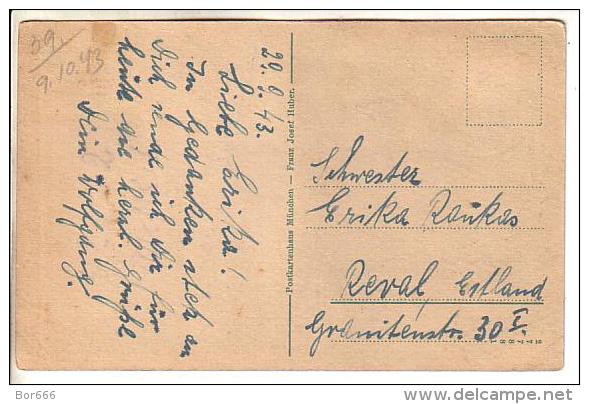 39.
9.10.43
29.9.43.
Liebe Erika!
In Gedanken stets an
Dich sende ich Dir für
heute die herzl. Grüße
Dein Wolfgang.
Postkartenhaus München — Franz Josef Huber.
Schwester
Erika Raukas
Reval, Estland
Granitenstr. 30 I.
Bor666
delcampe.net